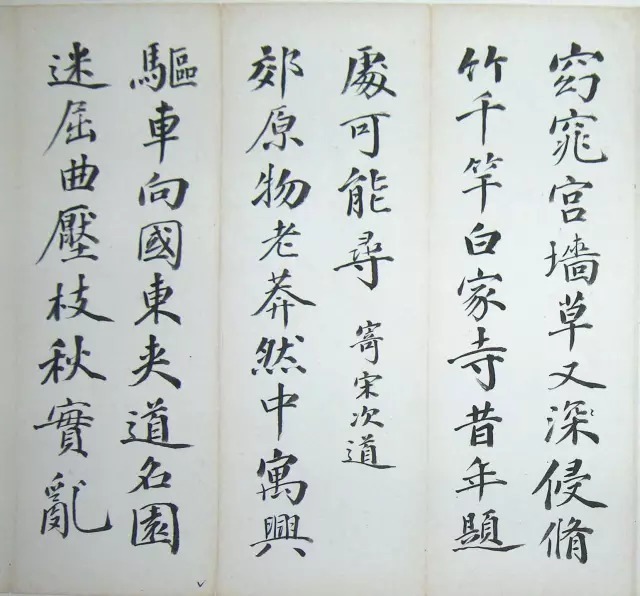 窈窕宮墻草又深侵脩
竹千竿白家寺昔年題
處可能尋 寄宋次道
郊原物老莽然中寓興
驅車向國東夾道名園
迷屈曲壓枝秋實亂